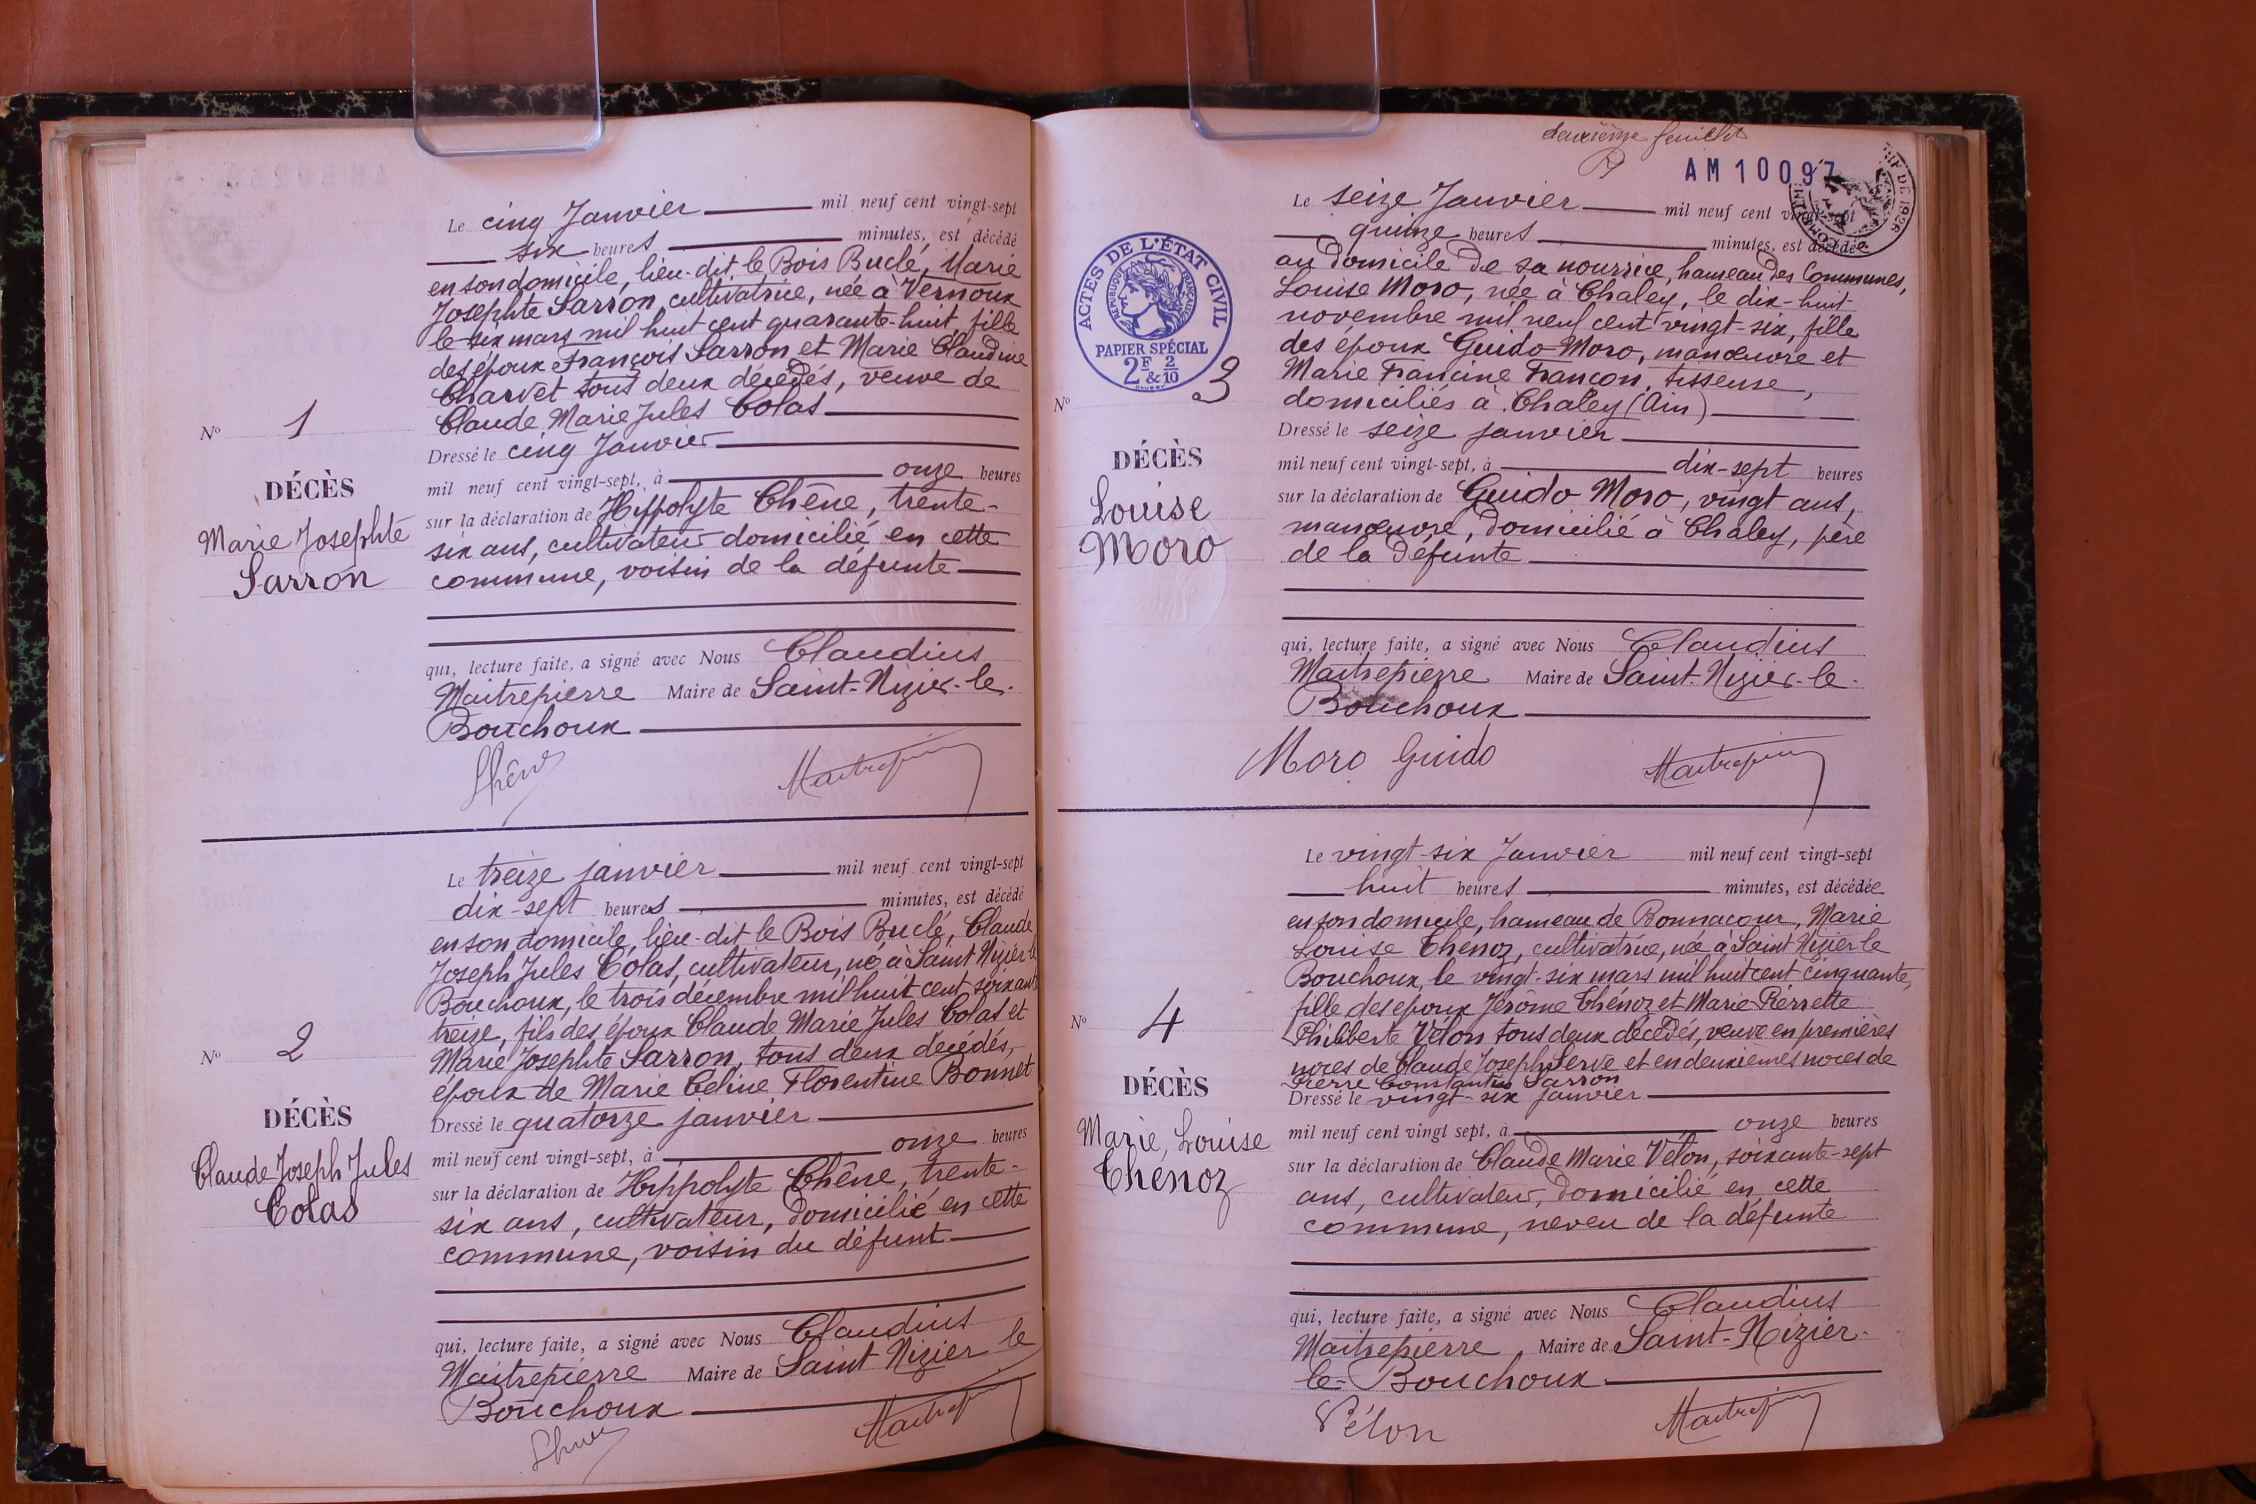 Le cinq Janvier mil neuf cent vingt-sept
six heures minutes, est décédé
en son domicile, lieu-dit le Bois Buclé, Marie
Josephte Sarron, cultivatrice, née à Vernoux
le six mars mil huit cent quarante-huit, fille
des époux François Sarron et Marie Claudine
Charvet tous deux décédés, veuve de
Claude Marie Jules Colas
Dressé le cinq Janvier
mil neuf cent vingt-sept, à onze heures
sur la déclaration de Hippolyte Chêne, trente-
six ans, cultivateur domicilié en cette
commune, voisin de la défunte
qui, lecture faite, a signé avec Nous Claudius
Maitrepierre Maire de Saint-Nizier-le-
Bouchoux
Nº 1
DÉCÈS
Marie Josephte
Sarron
Le treize janvier mil neuf cent vingt-sept
dix-sept heures minutes, est décédé
en son domicile, lieu-dit le Bois Buclé, Claude
Joseph Jules Colas, cultivateur, né à Saint Nizier le
Bouchoux, le trois décembre mil huit cent soixante
treize, fils des époux Claude Marie Jules Colas et
Marie Josephte Sarron, tous deux décédés,
époux de Marie Celine Florentine Bonnet
Dressé le quatorze janvier
mil neuf cent vingt-sept, à onze heures
sur la déclaration de Hippolyte Chêne, trente-
six ans, cultivateur, domicilié en cette
commune, voisin du défunt
qui, lecture faite, a signé avec Nous Claudius
Maitrepierre Maire de Saint Nizier le
Bouchoux
Maitrepierre
Nº 2
DÉCÈS
Claude Joseph Jules
Colas
deuxième feuillet
AM10097
ACTES DE L'ÉTAT CIVIL
RÉPUBLIQUE FRANÇAISE
PAPIER SPÉCIAL
2F & 2/10
Le seize Janvier mil neuf cent vingt-sept
quinze heures minutes, est décédée
au domicile de sa nourrice, hameau des Communes,
Louise Moro, née à Chaley, le dix-huit
novembre mil neuf cent vingt-six, fille
des époux Guido Moro, manœuvre et
Marie Francine Françon, tisseuse,
domiciliés à Chaley (Ain)
Dressé le seize janvier
mil neuf cent vingt-sept, à dix-sept heures
sur la déclaration de Guido Moro, vingt ans,
manœuvre, domicilié à Chaley, père
de la défunte
qui, lecture faite, a signé avec Nous Claudius
Maitrepierre Maire de Saint-Nizier-le-
Bouchoux
Moro Guido Maitrepierre
Nº 3
DÉCÈS
Louise
Moro
Le vingt-six Janvier mil neuf cent vingt-sept
huit heures minutes, est décédée
en son domicile, hameau de Bonnacour, Marie
Louise Thenoz, cultivatrice, née à Saint Nizier le
Bouchoux, le vingt-six mars mil huit cent cinquante,
fille des époux Jérôme Thénoz et Marie Pierrette
Philiberte Vélon tous deux décédés, veuve en premières
noces de Claude Joseph Serve et en deuxièmes noces de
Pierre Constantin Sarron
Dressé le vingt-six janvier
mil neuf cent vingt sept, à onze heures
sur la déclaration de Claude Marie Vélon, soixante-sept
ans, cultivateur, domicilié en cette
commune, neveu de la défunte
qui, lecture faite, a signé avec Nous Claudius
Maitrepierre, Maire de Saint-Nizier-
le-Bouchoux
Vélon Maitrepierre
Nº 4
DÉCÈS
Marie, Louise
Thenoz